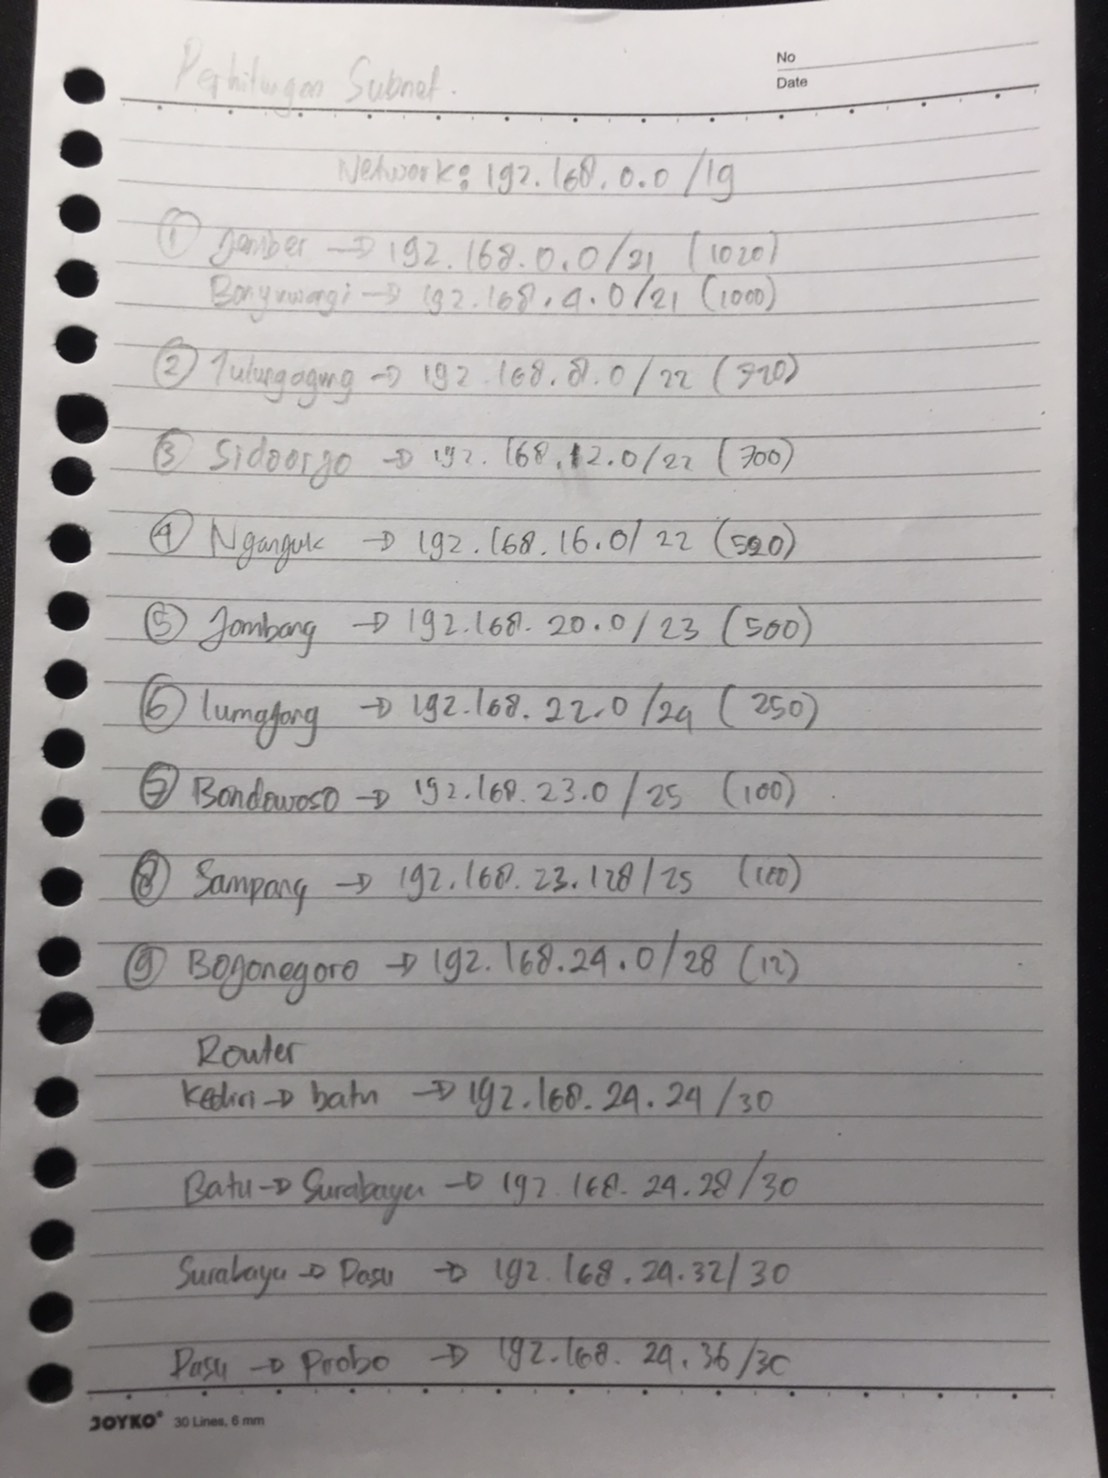 No
Date
Perhitungan Subnet.
Network: 192.168.0.0/19
① Jember → 192.168.0.0/21 (1020)
Banyuwangi → 192.168.4.0/21 (1000)
② Tulungagung → 192.168.8.0/22 (720)
③ Sidoarjo → 192.168.12.0/22 (700)
④ Nganguk → 192.168.16.0/22 (520)
⑤ Jombang → 192.168.20.0/23 (500)
⑥ lumajang → 192.168.22.0/24 (250)
⑦ Bondowoso → 192.168.23.0/25 (100)
⑧ Sampang → 192.168.23.128/25 (100)
⑨ Bojonegoro → 192.168.24.0/28 (12)
Router
Kediri → batu → 192.168.24.24/30
Batu → Surabaya → 192.168.24.28/30
Surabaya → Pasu → 192.168.24.32/30
Pasu → Probo → 192.168.24.36/30
JOYKO 30 Lines, 6 mm